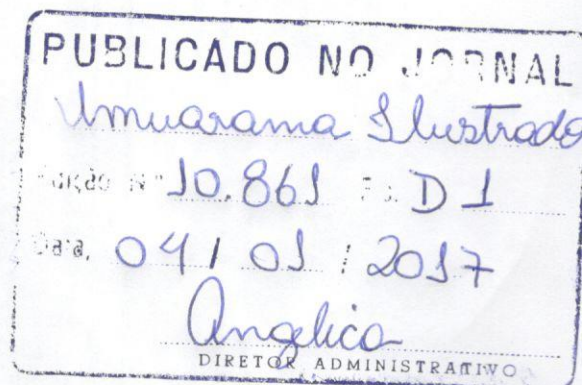 PUBLICADO NO JORNAL
Umuarama Ilustrado
Edição Nº 10.861 Fs. D 1
Data, 04 / 01 / 2017
Angelica
DIRETOR ADMINISTRATIVO